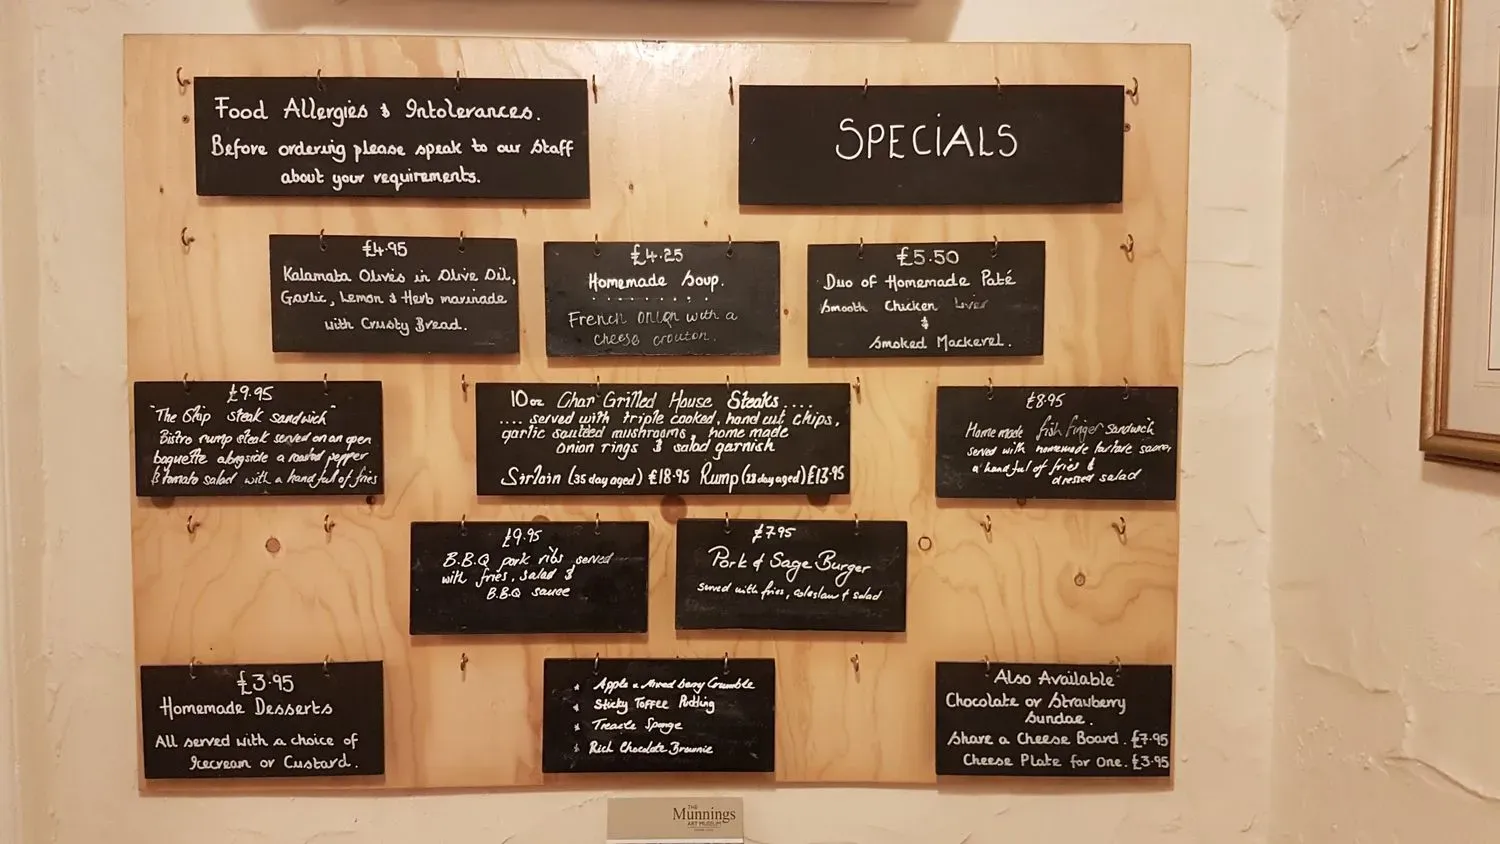 Food Allergies & Intolerances.
Before ordering please speak to our Staff
about your requirements.
SPECIALS
£4.95
Kalamata Olives in Olive Oil,
Garlic, Lemon & Herb marinade
with Crusty Bread.
£4.25
Homemade Soup.
French onion with a
cheese crouton.
£5.50
Duo of Homemade Paté
Smooth Chicken Liver
&
Smoked Mackerel.
£9.95
"The Ship steak sandwich"
Bistro rump steak served on an open
baguette alongside a roasted pepper
& tomato salad with a handful of fries
10oz Char Grilled House Steaks....
.... served with triple cooked, hand cut chips,
garlic sauteed mushrooms, home made
onion rings & salad garnish
Sirloin (35 day aged) £18.95 Rump (28 day aged) £13.95
£8.95
Homemade fish finger sandwich
served with homemade tartare sauce,
a handful of fries &
dressed salad
£9.95
B.B.Q pork ribs served
with fries, salad &
B.B.Q sauce
£7.95
Pork & Sage Burger
served with fries, coleslaw & salad
£3.95
Homemade Desserts
All served with a choice of
Icecream or Custard.
* Apple & Mixed berry Crumble
* Sticky Toffee Pudding
* Treacle Sponge
* Rich Chocolate Brownie
Also Available
Chocolate or Strawberry
Sundae.
Share a Cheese Board. £7.95
Cheese Plate for One. £3.95
THE
Munnings
ART MUSEUM